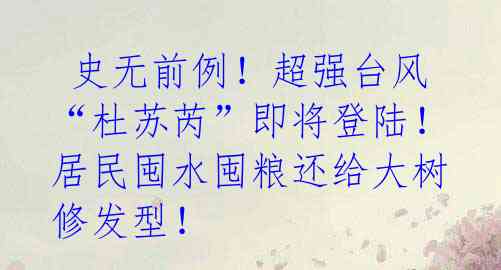 史无前例！超强台风
“杜苏芮”即将登陆！
居民囤水囤粮还给大树
修发型！